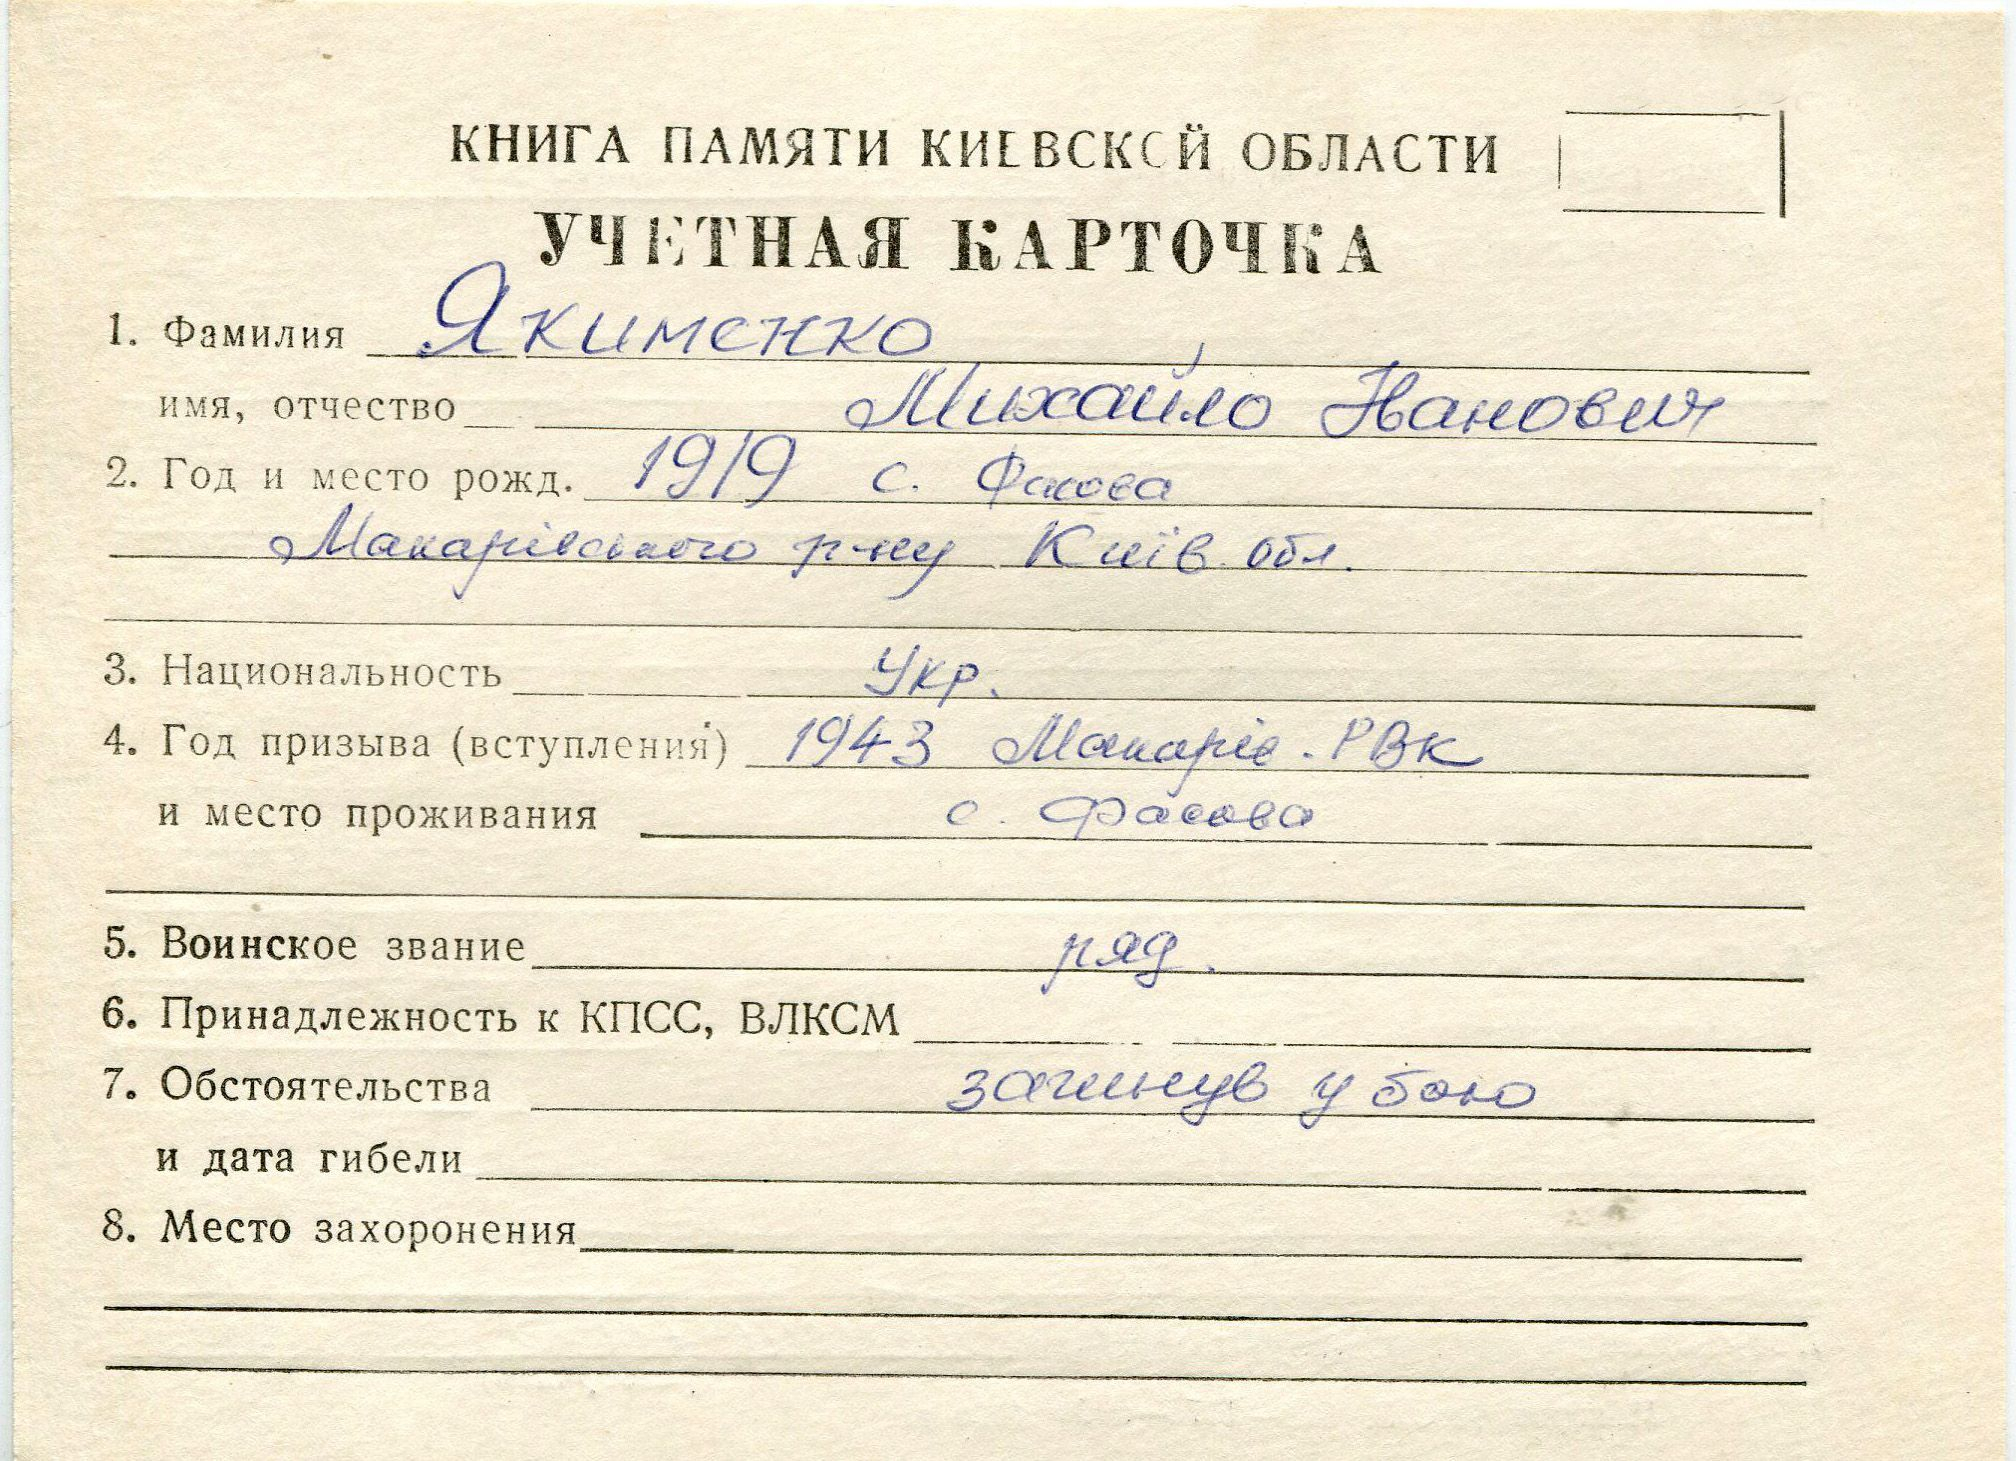 КНИГА ПАМЯТИ КИЕВСКОЙ ОБЛАСТИ
УЧЕТНАЯ КАРТОЧКА
1. Фамилия Якименко
имя, отчество Михайло Іванович
2. Год и место рожд. 1919 с. Фасова
Макарівського р-ну Київ. обл.
3. Национальность Укр.
4. Год призыва (вступления) 1943 Макарів. РВК
и место проживания с. Фасова
5. Воинское звание ряд.
6. Принадлежность к КПСС, ВЛКСМ
7. Обстоятельства загинув у бою
и дата гибели
8. Место захоронения